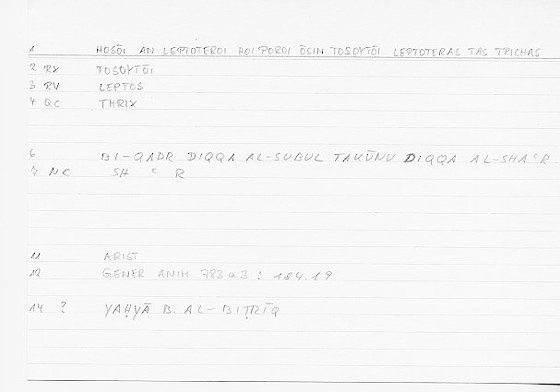 1 HOSŌI AN LEPTOTEROI HOI POROI ŌSIN TOSOYTŌI LEPTOTERAS TAS TRICHAS
2 RX TOSOYTŌI
3 RV LEPTOS
4 QC THRIX
6 BI-QADR DIQQA AL-SUBUL TAKŪNU DIQQA AL-SHAʿR
7 NC SH ʿ R
11 ARIST
12 GENER ANIM 783a3 : 184.19
14 ? YAḤYĀ B. AL-BIṬRĪQ